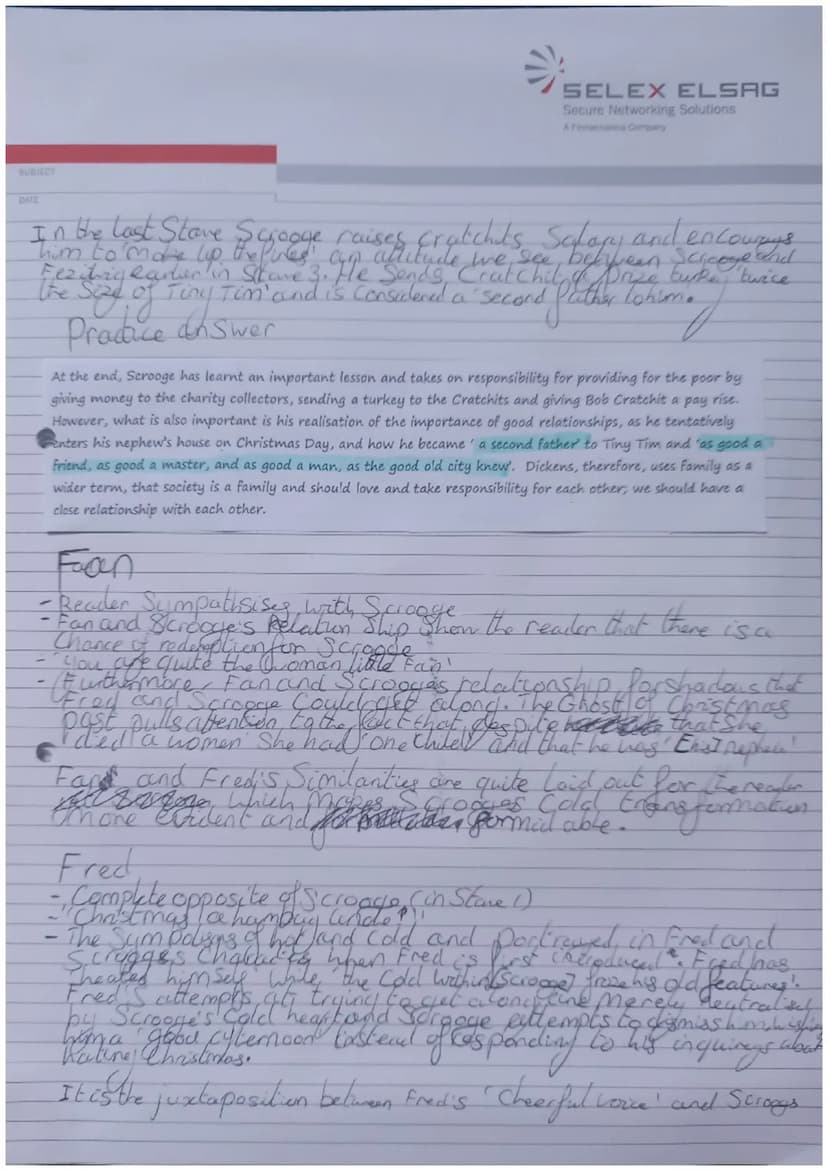 SELEX ELSAG
Secure Networking Solutions
A Finmeccanica Company
SUBJECT
DATE
In the last Stave Scrooge raises cratchits Salary and encourages
him to 'make up the fires' an attitude we see between Scrooge and
Fezziwig earlier in Stave 3. He Sends Cratchit a prize turkey 'twice
the Size of Tiny Tim' and is considered a 'second father' to him.
Practice answer
At the end, Scrooge has learnt an important lesson and takes on responsibility for providing for the poor by
giving money to the charity collectors, sending a turkey to the Cratchits and giving Bob Cratchit a pay rise.
However, what is also important is his realisation of the importance of good relationships, as he tentatively
enters his nephew's house on Christmas Day, and how he became ' a second father' to Tiny Tim and 'as good a
friend, as good a master, and as good a man, as the good old city knew'. Dickens, therefore, uses family as a
wider term, that society is a family and should love and take responsibility for each other; we should have a
close relationship with each other.
Faan
- Reader Sympathsises with Scrooge
- Fan and Scrooge's Relation Ship Show the reader that there is a
Chance of redemption for Scrooge
- 'You are quite the woman little Fan'
- Furthermore, Fan and Scrooge's relationship forshadows that
Fred and Scrooge Could get along. The Ghost of Christmas
past pulls attention to the fact that despite that She
'died a women' She had 'one Child' and that he has
and Fred's Similarities are quite laid out for the reader
which makes Scrooges Cold transformation
more evident and formidable.
Fred
- Complete opposite of Scrooge (in Stave 1)
- 'Christmas a humbug Uncle!'
- The Symbolism of hot and Cold and portrayed in Fred and
Scrooges Characters when Fred is first introduced. Fred has
'heated himself' while 'the Cold within [Scrooge] froze his old features'.
Fred's attempts at trying to get along are merely neutralised
by Scrooge's Cold heart and Scrooge attempts to dismiss him wishing
him a 'good afternoon' instead of responding to his inquireys about
hating Christmas.
It is the juxtaposition between Fred's 'Cheerful voice' and Scroogs